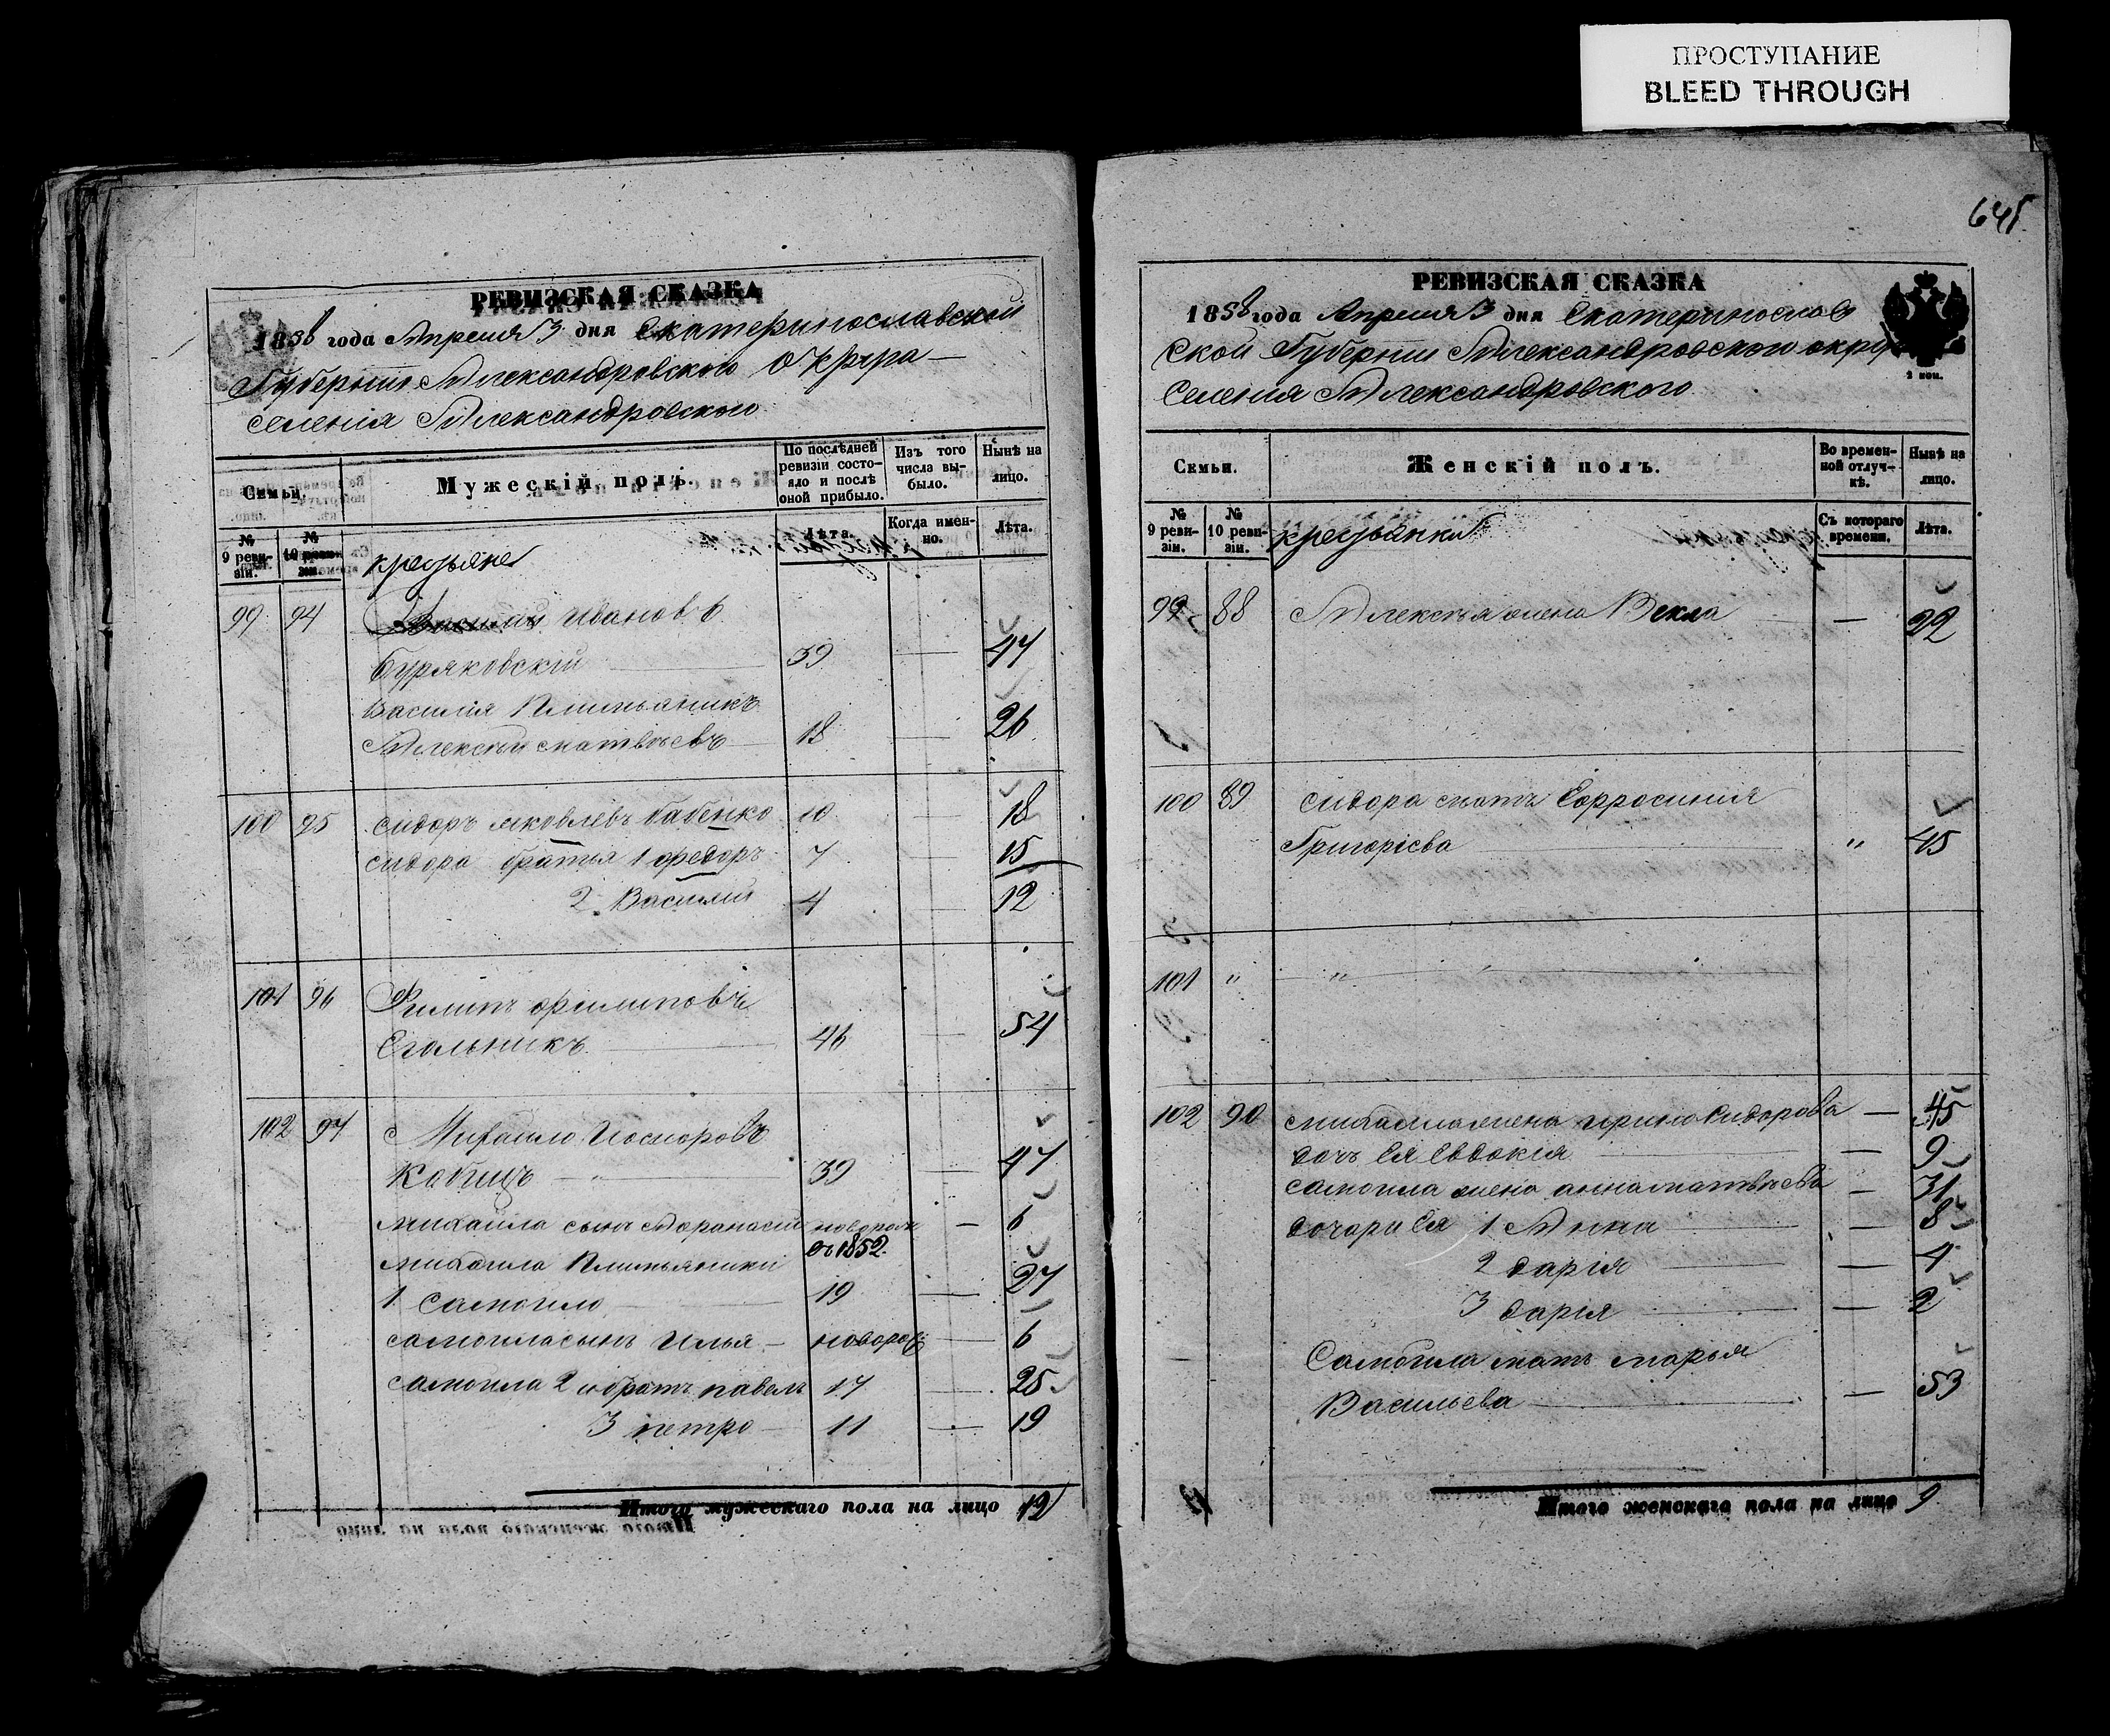 ПРОСТУПАНИЕ
BLEED THROUGH
645.
РЕВИЗСКАЯ СКАЗКА
1858 года Апреля 3 дня Екатеринославской
Губернии Александровского округа
селенія Александровского
Семьи.
Мужескій полъ.
По послѣдней ревизіи состояло и послѣ оной прибыло.
Изъ того числа выбыло.
Нынѣ на лицо.
№ 9 ревизіи.
№ 10 ревизіи.
крестьяне
Лѣта.
Когда именно.
Лѣта.
99 94 Василий Ивановъ
Буряковскій 39 — 47
Василія Племяникъ
Алексѣй Матвѣевъ 18 — 26
100 95 Сидоръ Яковлевъ бабенко 10 — 18
Сидора братья 1 Федоръ 7 — 15
2. Василий 4 — 12
101 96 Филипъ Филиповъ
46 — 54
102 97 Михайло
39 — 47
Михайла сынъ Афанасий новорож — 6
съ 1852.
Михайла Племяники
1. Самойло 19 — 27
Самойла сынъ Илья — новорож — 6
Самойла 2й братъ павелъ 17 — 25
3 петро 11 — 19
Итого мужескаго пола на лицо 12
РЕВИЗСКАЯ СКАЗКА
1858 года Апреля 3 дня Екатеринослав
ской Губернии Александровского округа
Селения Александровского
2 коп.
Семьи.
Женскій полъ.
Во временной отлучкѣ.
Нынѣ на лицо.
№ 9 ревизіи.
№ 10 ревизіи.
крестьянки
Съ котораго времени.
Лѣта.
99 88 Алексѣя жена Векла — 22
100 89 Сидора мать Ефросиния
Григоріева " 45
101 " "
102 90 Михайла жена ирина Сидорова — 45
дочь Ея Евдокія — 9
Самойла жена анна матвѣева — 31
дочери Ея 1 Анна — 8
2 дарія — 4
3 дарія — 2
Самойла мать марья
Васильева — 53
Итого женскаго пола на лицо 9